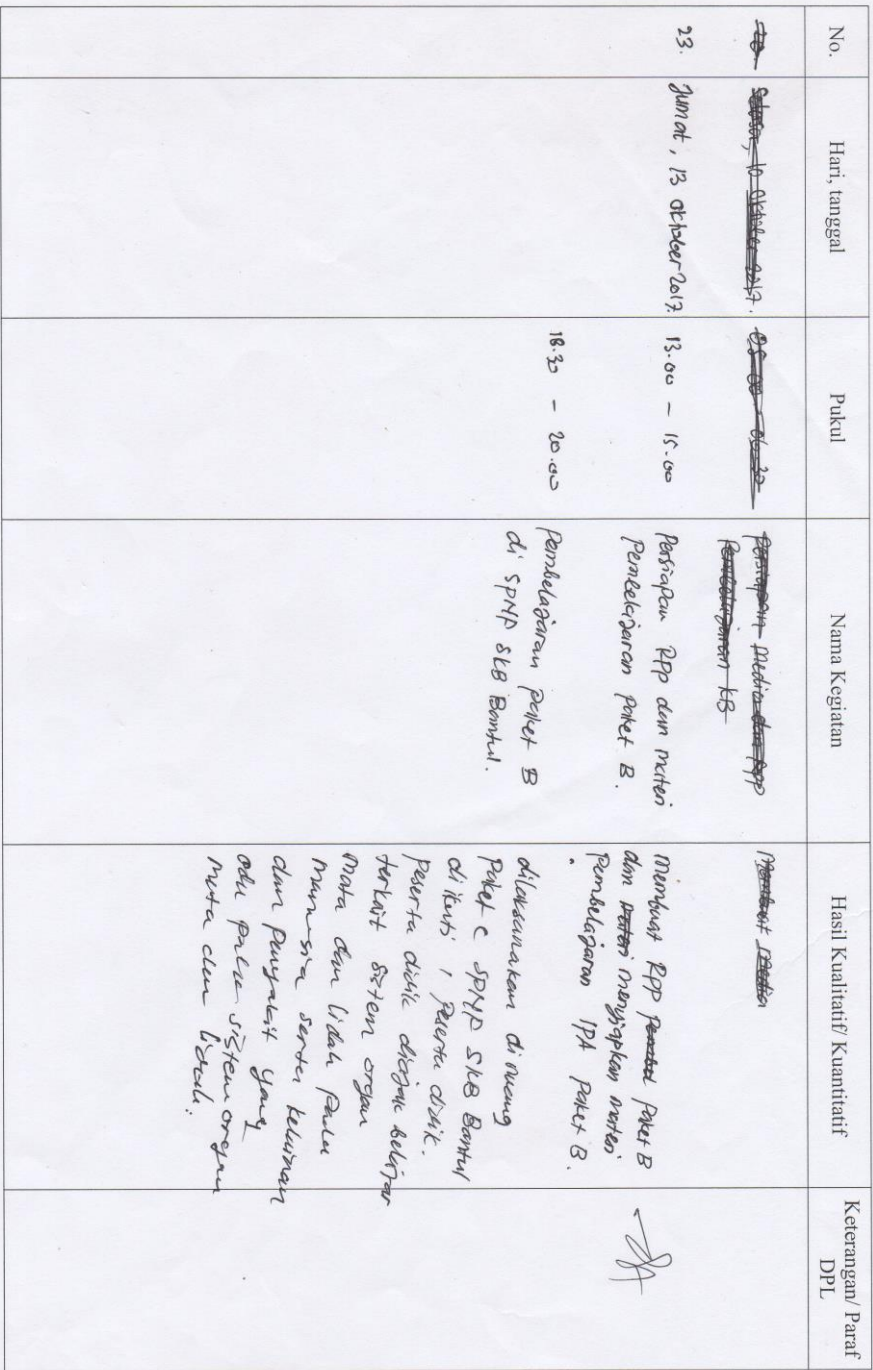 No.
Hari, tanggal
Pukul
Nama Kegiatan
Hasil Kualitatif/ Kuantitatif
Keterangan/ Paraf
DPL
Selasa, 10 oktober 2017.
05.00 - 06.30
Persiapan Media dan RPP
Pembelajaran KB
Membuat Media
23.
Jumat, 13 oktober 2017.
13.00 - 15.00
Persiapan RPP dan materi
Pembelajaran Paket B.
Membuat RPP Paket B
dan menyiapkan materi
Pembelajaran IPA Paket B.
18.30 - 20.00
Pembelajaran Paket B
di SPNP SKB Bantul.
dilaksanakan di ruang
Paket C SPNP SKB Bantul
diikuti 1 Peserta didik.
Peserta didik diajak belajar
terkait sistem organ
mata dan lidah Pada
manusia serta kelainan
dan Penyakit yang
ada pada sistem organ
mata dan lidah.